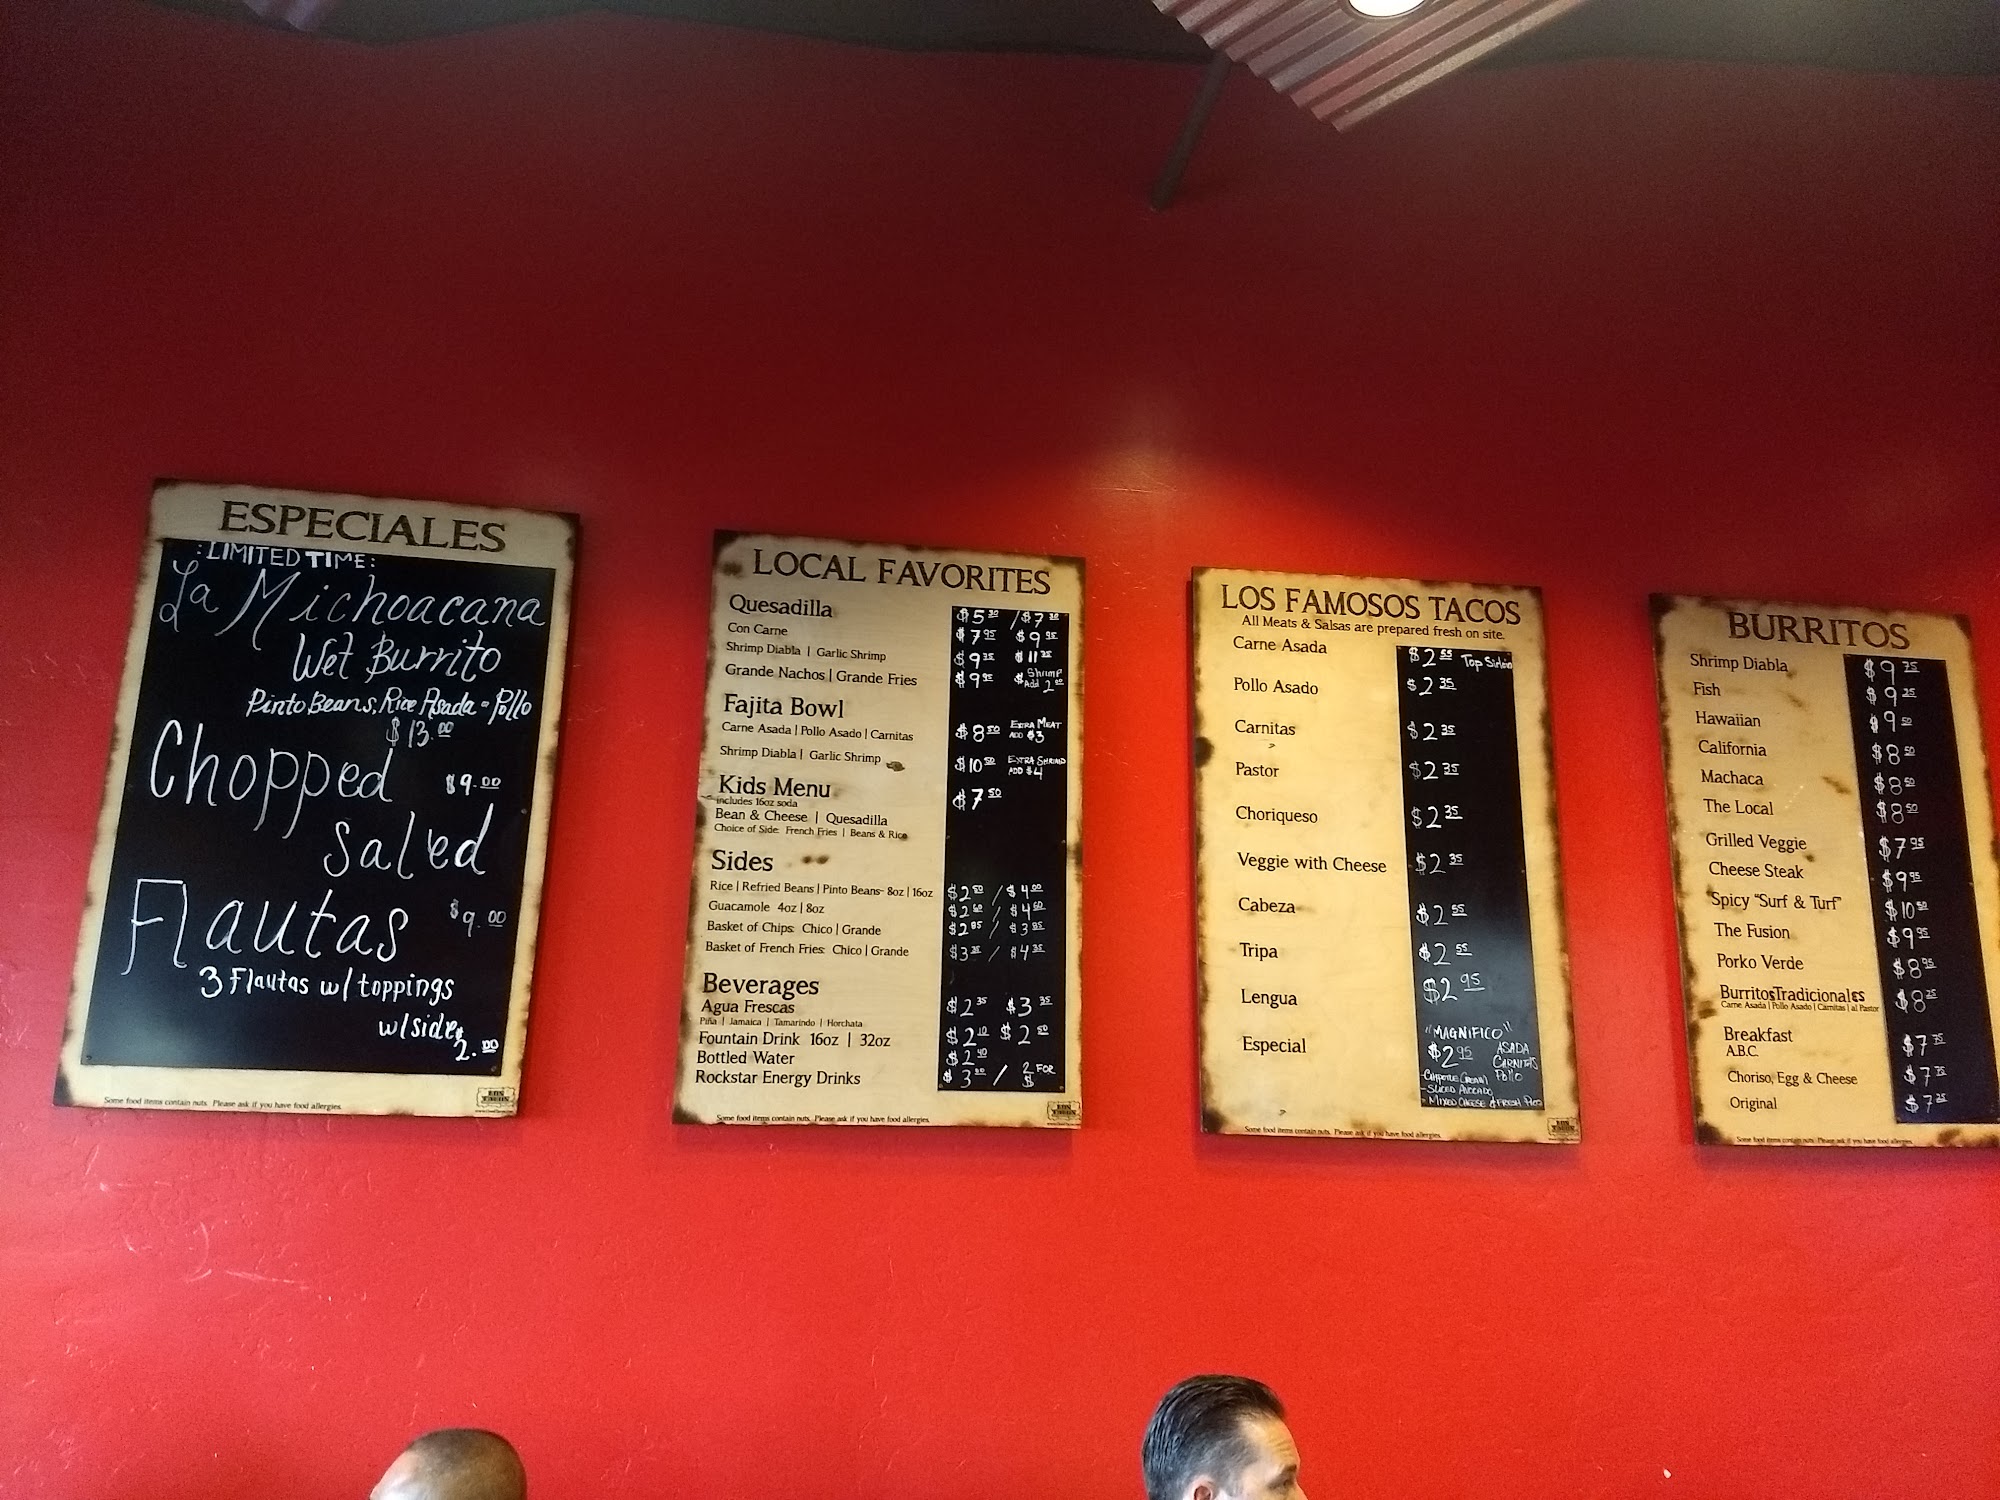 ESPECIALES
:LIMITED TIME:
La Michoacana
Wet Burrito
Pinto Beans, Rice Asada - Pollo
$13.00
Chopped $9.00
Saled
Flautas $9.00
3 Flautas w/ toppings
w/side
2.00
Some food items contain nuts. Please ask if you have food allergies.
LOCAL FAVORITES
Quesadilla $5 / $7
Con Carne $7 95 $9 95
Shrimp Diabla | Garlic Shrimp $9 $11
Grande Nachos | Grande Fries $9 95 Shrimp Add 2 00
Fajita Bowl
Carne Asada | Pollo Asado | Carnitas $8 50 EXTRA MEAT ADD $3
Shrimp Diabla | Garlic Shrimp $10 50 EXTRA SHRIMP ADD $4
Kids Menu $7 50
includes 16oz soda
Bean & Cheese | Quesadilla
Choice of Side: French Fries | Beans & Rice
Sides
Rice | Refried Beans | Pinto Beans- 8oz | 16oz $2 50 / $4 00
Guacamole 4oz | 8oz $2 / $4
Basket of Chips: Chico | Grande $2 / $3
Basket of French Fries: Chico | Grande $3 / $4
Beverages
Agua Frescas $2 35 $3 35
Piña | Jamaica | Tamarindo | Horchata
Fountain Drink 16oz | 32oz $2 10 $2 50
Bottled Water $2
Rockstar Energy Drinks $3 00 / 2 FOR $
Some food items contain nuts. Please ask if you have food allergies.
LOS FAMOSOS TACOS
All Meats & Salsas are prepared fresh on site.
Carne Asada $2 55 Top Sirloin
Pollo Asado $2 35
Carnitas $2 35
Pastor $2 35
Choriqueso $2 35
Veggie with Cheese $2 35
Cabeza $2 55
Tripa $2 55
Lengua $2 95
Especial "MAGNIFICO"
$2 95 ASADA
CARNITAS
POLLO
- CHIPOTLE CREAM
- SLICED AVOCADO
- MIXED CHEESE & FRESH PICO
Some food items contain nuts. Please ask if you have food allergies.
BURRITOS
Shrimp Diabla $9 75
Fish $9 25
Hawaiian $9 50
California $8 50
Machaca $8 50
The Local $8 50
Grilled Veggie $7 95
Cheese Steak $9 95
Spicy "Surf & Turf" $10 50
The Fusion $9 95
Porko Verde $8 95
Burritos Tradicionales $8 25
Carne Asada | Pollo Asado | Carnitas | al Pastor
Breakfast
A.B.C. $7 75
Choriso, Egg & Cheese $7 75
Original $7 25
Some food items contain nuts. Please ask if you have food allergies.